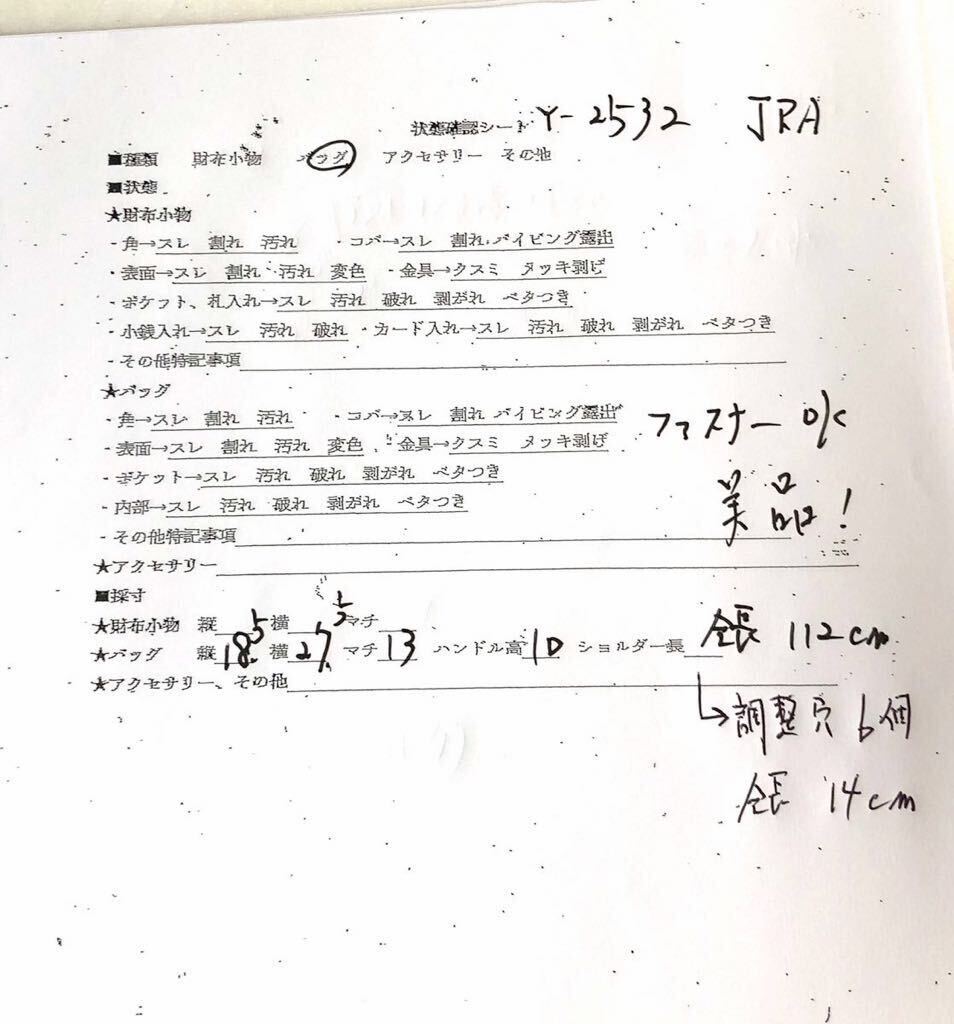 状態確認シート Y-2532 JRA
■種類 財布小物 バッグ アクセサリー その他
■状態
★財布小物
・角→スレ 割れ 汚れ ・コバ→スレ 割れ パイピング露出
・表面→スレ 割れ 汚れ 変色 ・金具→クスミ メッキ剥げ
・ポケット、札入れ→スレ 汚れ 破れ 剥がれ ベタつき
・小銭入れ→スレ 汚れ 破れ ・カード入れ→スレ 汚れ 破れ 剥がれ ベタつき
・その他特記事項
★バッグ
・角→スレ 割れ 汚れ ・コバ→スレ 割れ パイピング露出
ファスナー OK
・表面→スレ 割れ 汚れ 変色 ・金具→クスミ メッキ剥げ
・ポケット→スレ 汚れ 破れ 剥がれ ベタつき
・内部→スレ 汚れ 破れ 剥がれ ベタつき
美品!
・その他特記事項
★アクセサリー
■採寸
★財布小物 縦 横 マチ
★バッグ 縦 18.5 横 27.5 マチ 13 ハンドル高 10 ショルダー長 全長 112cm
★アクセサリー、その他
↳調整穴 6個
全長 14cm